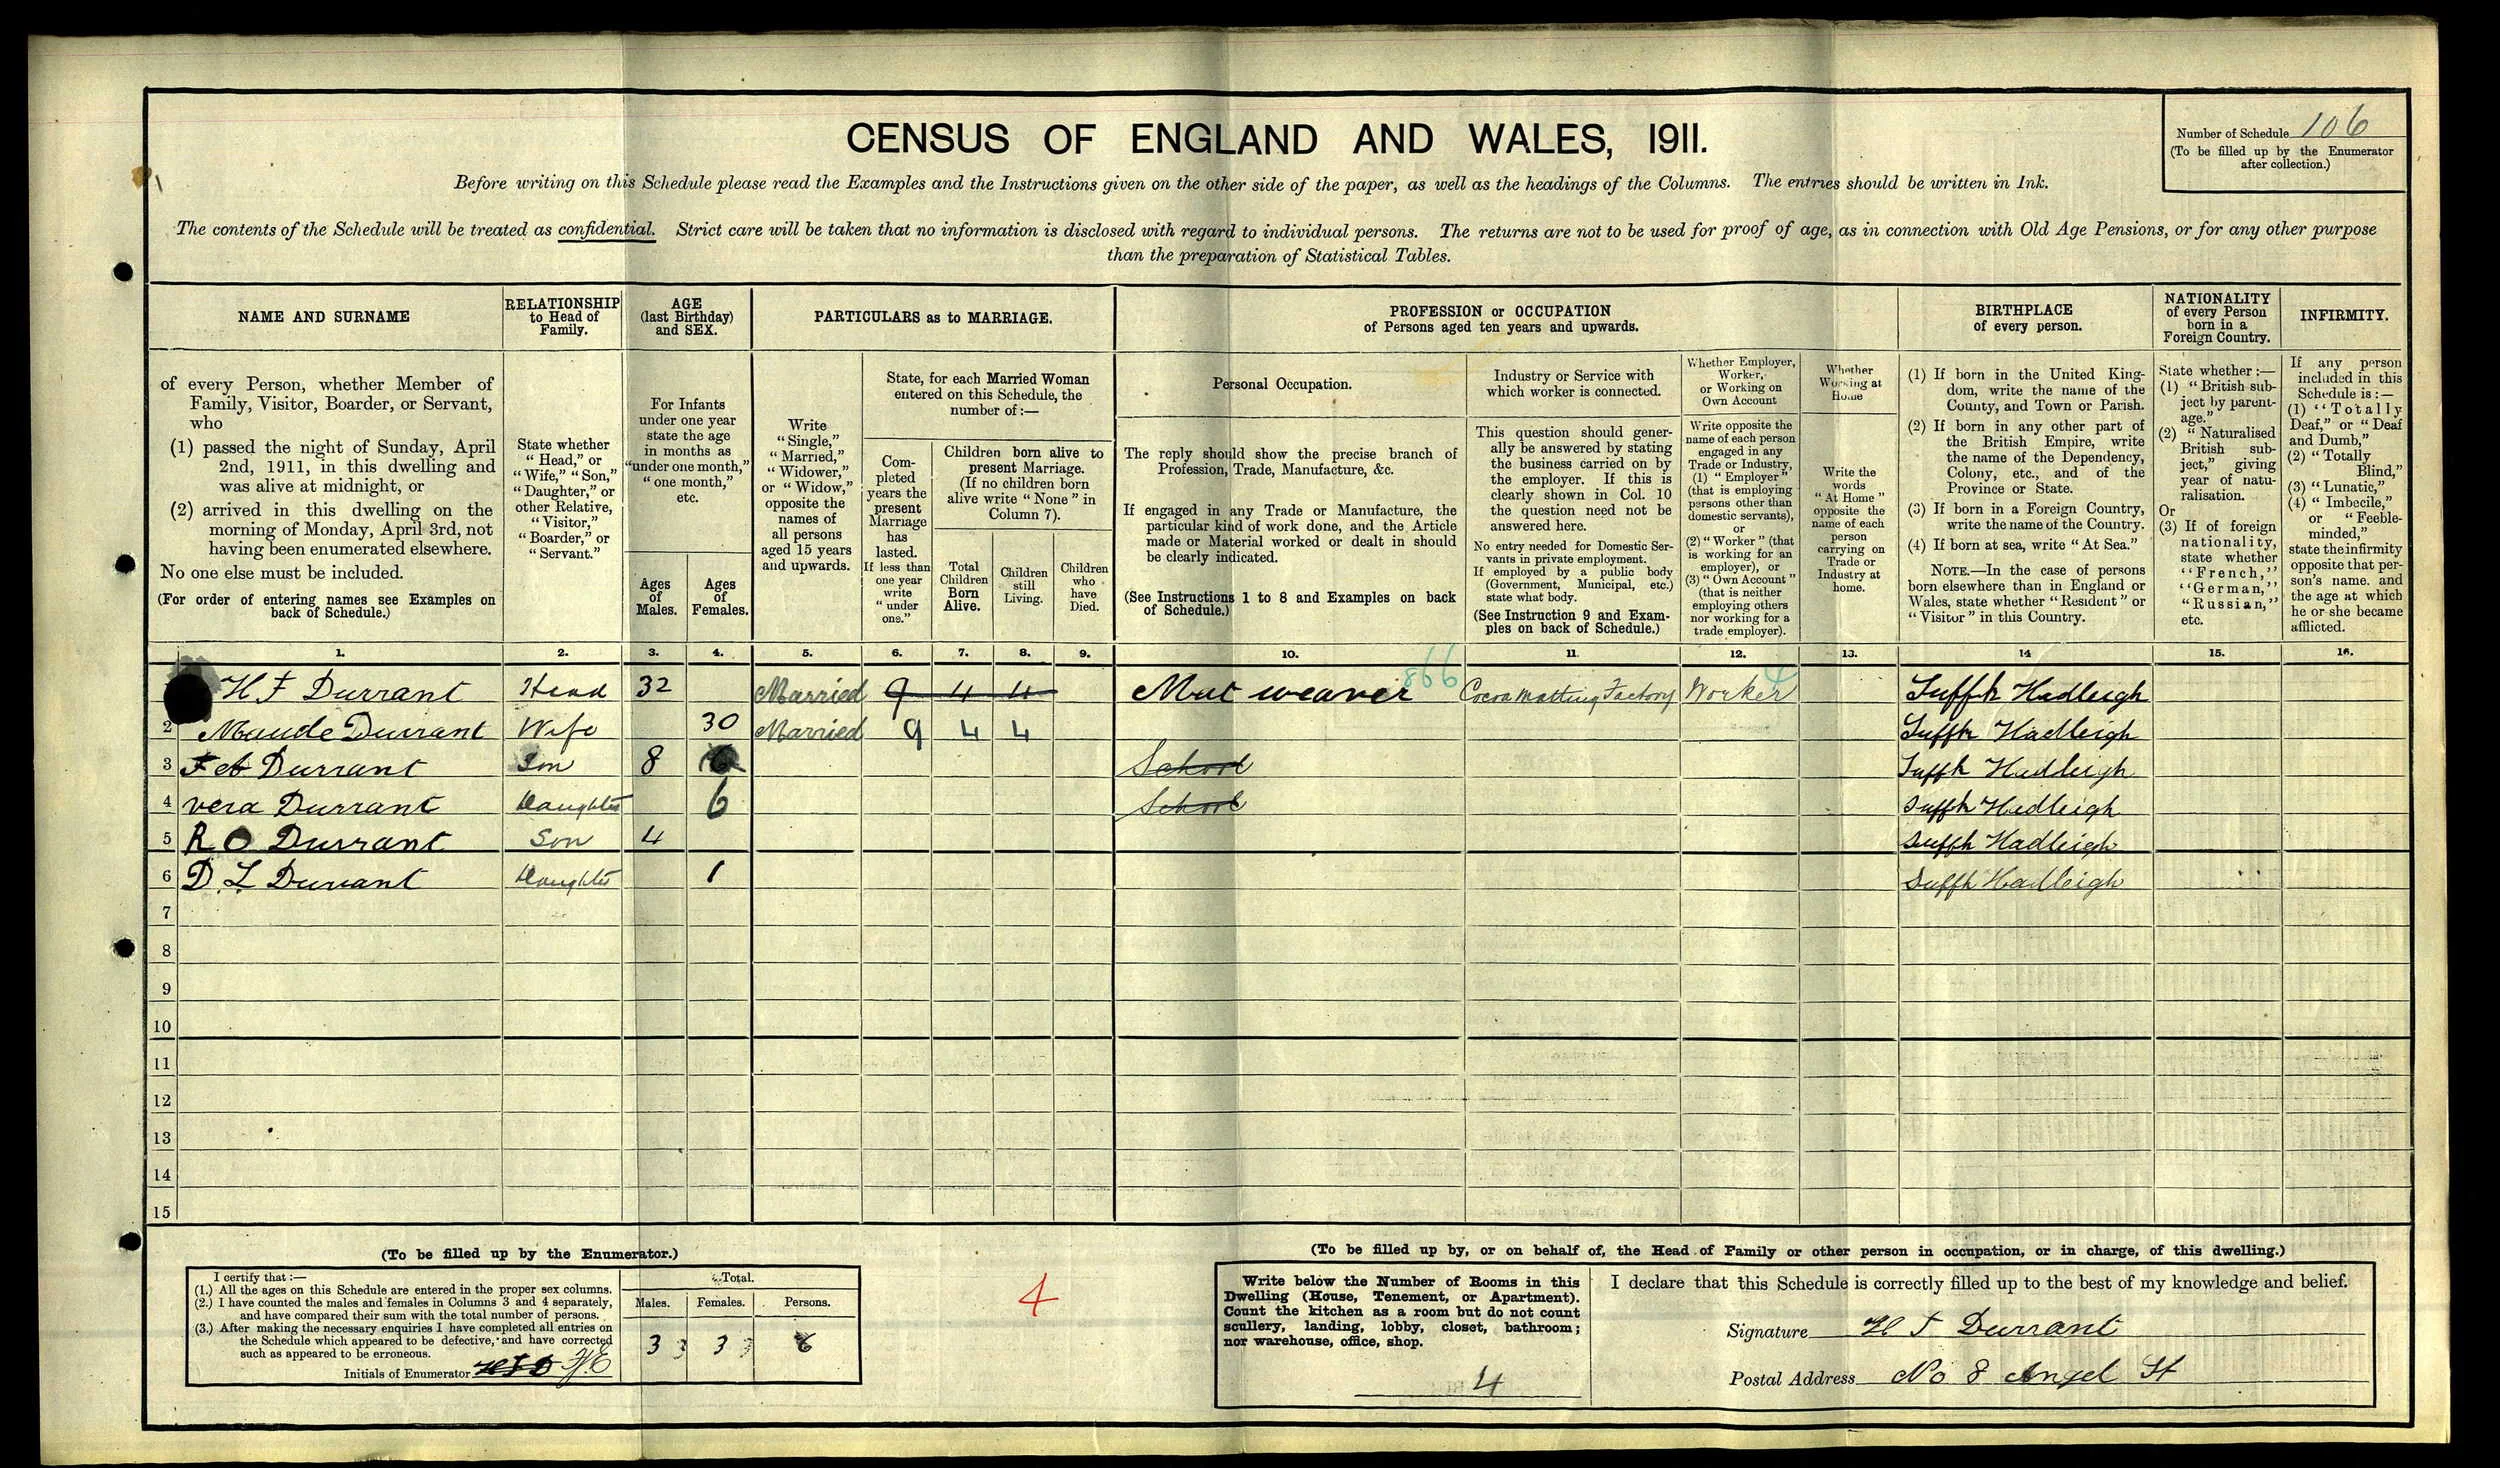 CENSUS OF ENGLAND AND WALES, 1911.
Number of Schedule 106
(To be filled up by the Enumerator
after collection.)
Before writing on this Schedule please read the Examples and the Instructions given on the other side of the paper, as well as the headings of the Columns. The entries should be written in Ink.
The contents of the Schedule will be treated as confidential. Strict care will be taken that no information is disclosed with regard to individual persons. The returns are not to be used for proof of age, as in connection with Old Age Pensions, or for any other purpose
than the preparation of Statistical Tables.
NAME AND SURNAME
of every Person, whether Member of
Family, Visitor, Boarder, or Servant,
who
(1) passed the night of Sunday, April
2nd, 1911, in this dwelling and
was alive at midnight, or
(2) arrived in this dwelling on the
morning of Monday, April 3rd, not
having been enumerated elsewhere.
No one else must be included.
(For order of entering names see Examples on
back of Schedule.)
RELATIONSHIP
to Head of
Family.
State whether
"Head," or
"Wife," "Son,"
"Daughter," or
other Relative,
"Visitor,"
"Boarder," or
"Servant."
AGE
(last Birthday)
and SEX.
For Infants
under one year
state the age
in months as
"under one month,"
"one month,"
etc.
Ages
of
Males.
Ages
of
Females.
PARTICULARS as to MARRIAGE.
Write
"Single,"
"Married,"
"Widower,"
or "Widow,"
opposite the
names of
all persons
aged 15 years
and upwards.
State, for each Married Woman
entered on this Schedule, the
number of :—
Com-
pleted
years the
present
Marriage
has
lasted.
If less than
one year
write
"under
one."
Children born alive to
present Marriage.
(If no children born
alive write "None" in
Column 7).
Total
Children
Born
Alive.
Children
still
Living.
Children
who
have
Died.
PROFESSION or OCCUPATION
of Persons aged ten years and upwards.
Personal Occupation.
The reply should show the precise branch of
Profession, Trade, Manufacture, &c.
If engaged in any Trade or Manufacture, the
particular kind of work done, and the Article
made or Material worked or dealt in should
be clearly indicated.
(See Instructions 1 to 8 and Examples on back
of Schedule.)
Industry or Service with
which worker is connected.
This question should gener-
ally be answered by stating
the business carried on by
the employer. If this is
clearly shown in Col. 10
the question need not be
answered here.
No entry needed for Domestic Ser-
vants in private employment.
If employed by a public body
(Government, Municipal, etc.)
state what body.
(See Instruction 9 and Exam-
ples on back of Schedule.)
Whether Employer,
Worker,
or Working on
Own Account
Write opposite the
name of each person
engaged in any
Trade or Industry,
(1) "Employer"
(that is employing
persons other than
domestic servants),
or
(2) "Worker" (that
is working for an
employer), or
(3) "Own Account"
(that is neither
employing others
nor working for a
trade employer).
Whether
Working at
Home
Write the
words
"At Home"
opposite the
name of each
person
carrying on
Trade or
Industry at
home.
BIRTHPLACE
of every person.
(1) If born in the United King-
dom, write the name of the
County, and Town or Parish.
(2) If born in any other part of
the British Empire, write
the name of the Dependency,
Colony, etc., and of the
Province or State.
(3) If born in a Foreign Country,
write the name of the Country.
(4) If born at sea, write "At Sea."
NOTE.—In the case of persons
born elsewhere than in England or
Wales, state whether "Resident" or
"Visitor" in this Country.
NATIONALITY
of every Person
born in a
Foreign Country.
State whether :—
(1) "British sub-
ject by parent-
age."
(2) "Naturalised
British sub-
ject," giving
year of natu-
ralisation.
Or
(3) If of foreign
nationality,
state whether
"French,"
"German,"
"Russian,"
etc.
INFIRMITY.
If any person
included in this
Schedule is :—
(1) "Totally
Deaf," or "Deaf
and Dumb,"
(2) "Totally
Blind,"
(3) "Lunatic,"
(4) "Imbecile,"
or "Feeble-
minded,"
state the infirmity
opposite that per-
son's name, and
the age at which
he or she became
afflicted.
1. 2. 3. 4. 5. 6. 7. 8. 9. 10. 11. 12. 13. 14 15. 16.
H F Durrant Head 32 Married 9 4 4 Mat weaver 866 Cocoa Matting Factory Worker 4 Suffk Hadleigh
2 Maude Durrant Wife 30 Married 9 4 4 Suffk Hadleigh
3 F A Durrant Son 8 School Suffk Hadleigh
4 vera Durrant Daughter 6 School Suffk Hadleigh
5 R O Durrant Son 4 Suffk Hadleigh
6 D. L Durrant Daughter 1 Suffk Hadleigh
7
8
9
10
11
12
13
14
15
(To be filled up by the Enumerator.)
I certify that :—
(1.) All the ages on this Schedule are entered in the proper sex columns.
(2.) I have counted the males and females in Columns 3 and 4 separately,
and have compared their sum with the total number of persons.
(3.) After making the necessary enquiries I have completed all entries on
the Schedule which appeared to be defective, and have corrected
such as appeared to be erroneous.
Initials of Enumerator
Total.
Males. Females. Persons.
3 3 6
4
(To be filled up by, or on behalf of, the Head of Family or other person in occupation, or in charge, of this dwelling.)
Write below the Number of Rooms in this
Dwelling (House, Tenement, or Apartment).
Count the kitchen as a room but do not count
scullery, landing, lobby, closet, bathroom;
nor warehouse, office, shop.
4
I declare that this Schedule is correctly filled up to the best of my knowledge and belief.
Signature H F Durrant
Postal Address No 8 Angel St